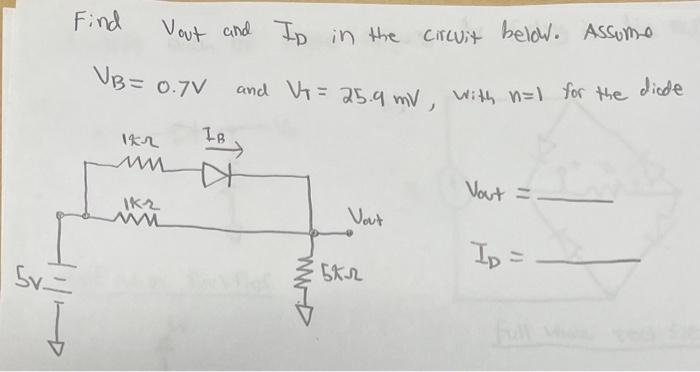 Find Vout and ID in the circuit below. Assume
VB = 0.7V and VT = 25.9 mV, with n=1 for the diode
1kΩ IB
1kΩ
Vout
Vout =
5V
5kΩ
ID =
Full wave